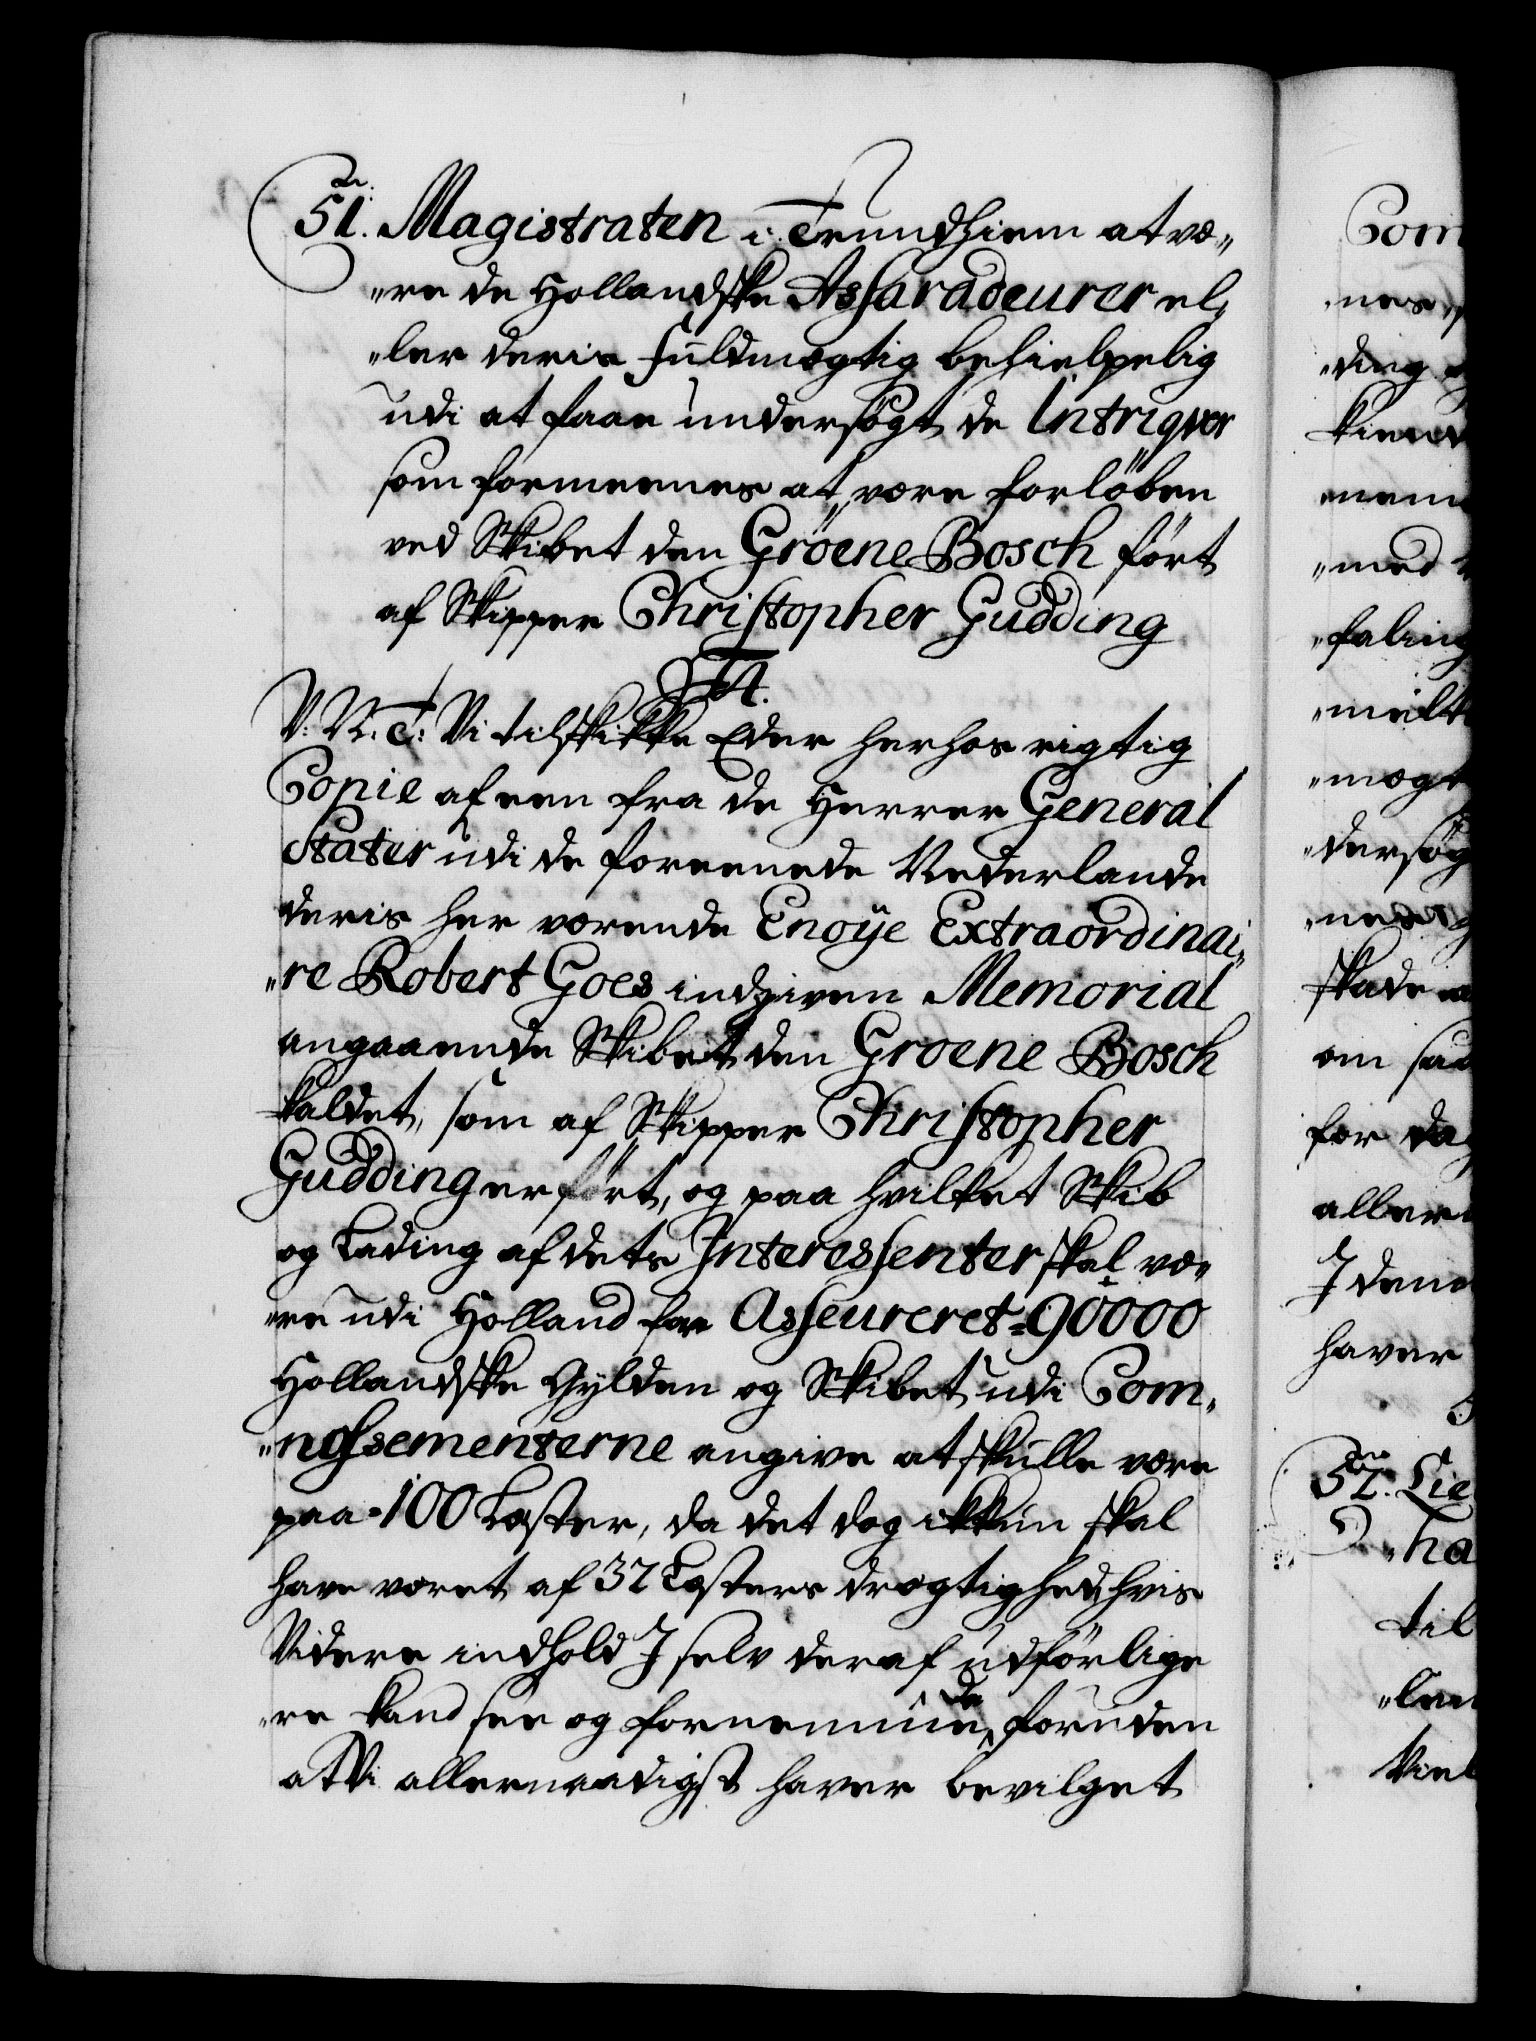 51. Magistraten i Trundhiem at væ„
„re de Hollandske Assaradeurer el„
„ler deris Fuldmægtig behielpelig
udi at faae undersögt de Intriqver
som formeenes at være forlöben
ved Skibet den Gröene Bosch fört
af Skipper Christopher Gudding
F4.
V. N. T: Vi tilskikke Eder herhos rigtig
Copie af een fra de Herrer General
Stater udi de foreenede Nederlande
deris her værende Enoÿe Extraordinai„
„re Robert Goes indgiven Memorial
angaaende Skibet den Groene Bosch
kaldet, som af Skipper Christopher
Gudding er fört, og paa hvilket Skib
og Lading af dets Interessenter skal væ„
„re udi Holland for Asseureret 90000
Hollandske Gylden og Skibet udi Com„
„nossementerne angive at skulle være
paa 100 Læster, da det dog ikkun skal
have været af 32 Læsters drægtighed, hvis
Videre indhold I selv deraf udförlige
„re kand see og fornemme, da foruden
at Vi allernaadigst haver bevilget
Com
„nes
„ding
kiend
„nem
„med
„faling
„meldt
„mægt
„dersög
„nes
skade
om saa
for da
aller
I den
haver
52. Lie
„ha
til
„len
Viel